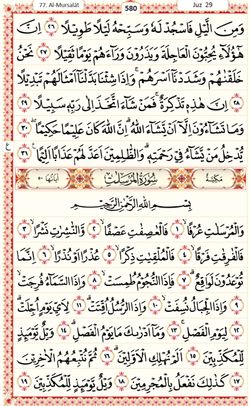 77. Al-Mursalāt
580
Juz 29
وَمِنَ الَّيْلِ فَاسْجُدْ لَهٗ وَسَبِّحْهُ لَيْلًا طَوِيْلًا ٢٦ اِنَّ
هٰٓؤُلَآءِ يُحِبُّوْنَ الْعَاجِلَةَ وَيَذَرُوْنَ وَرَآءَهُمْ يَوْمًا ثَقِيْلًا ٢٧ نَحْنُ
خَلَقْنٰهُمْ وَشَدَدْنَآ اَسْرَهُمْ وَاِذَا شِئْنَا بَدَّلْنَآ اَمْثَالَهُمْ تَبْدِيْلًا
٢٨ اِنَّ هٰذِهٖ تَذْكِرَةٌ فَمَنْ شَآءَ اتَّخَذَ اِلٰى رَبِّهٖ سَبِيْلًا ٢٩
وَمَا تَشَآءُوْنَ اِلَّآ اَنْ يَّشَآءَ اللّٰهُ اِنَّ اللّٰهَ كَانَ عَلِيْمًا حَكِيْمًا ٣٠
يُدْخِلُ مَنْ يَّشَآءُ فِيْ رَحْمَتِهٖ وَالظّٰلِمِيْنَ اَعَدَّ لَهُمْ عَذَابًا اَلِيْمًا ٣١
مَكِّيَّة سُوْرَةُ الْمُرْسَلٰتِ اٰيَاتُهَا ٥٠
بِسْمِ اللّٰهِ الرَّحْمٰنِ الرَّحِيْمِ
وَالْمُرْسَلٰتِ عُرْفًا ١ فَالْعٰصِفٰتِ عَصْفًا ٢ وَالنّٰشِرٰتِ نَشْرًا ٣
فَالْفٰرِقٰتِ فَرْقًا ٤ فَالْمُلْقِيٰتِ ذِكْرًا ٥ عُذْرًا اَوْ نُذْرًا ٦ اِنَّمَا
تُوْعَدُوْنَ لَوَاقِعٌ ٧ فَاِذَا النُّجُوْمُ طُمِسَتْ ٨ وَاِذَا السَّمَآءُ فُرِجَتْ
٩ وَاِذَا الْجِبَالُ نُسِفَتْ ١٠ وَاِذَا الرُّسُلُ اُقِّتَتْ ١١ لِاَيِّ يَوْمٍ اُجِّلَتْ
١٢ لِيَوْمِ الْفَصْلِ ١٣ وَمَآ اَدْرٰىكَ مَا يَوْمُ الْفَصْلِ ١٤ وَيْلٌ يَّوْمَئِذٍ
لِّلْمُكَذِّبِيْنَ ١٥ اَلَمْ نُهْلِكِ الْاَوَّلِيْنَ ١٦ ثُمَّ نُتْبِعُهُمُ الْاٰخِرِيْنَ
١٧ كَذٰلِكَ نَفْعَلُ بِالْمُجْرِمِيْنَ ١٨ وَيْلٌ يَّوْمَئِذٍ لِّلْمُكَذِّبِيْنَ ١٩